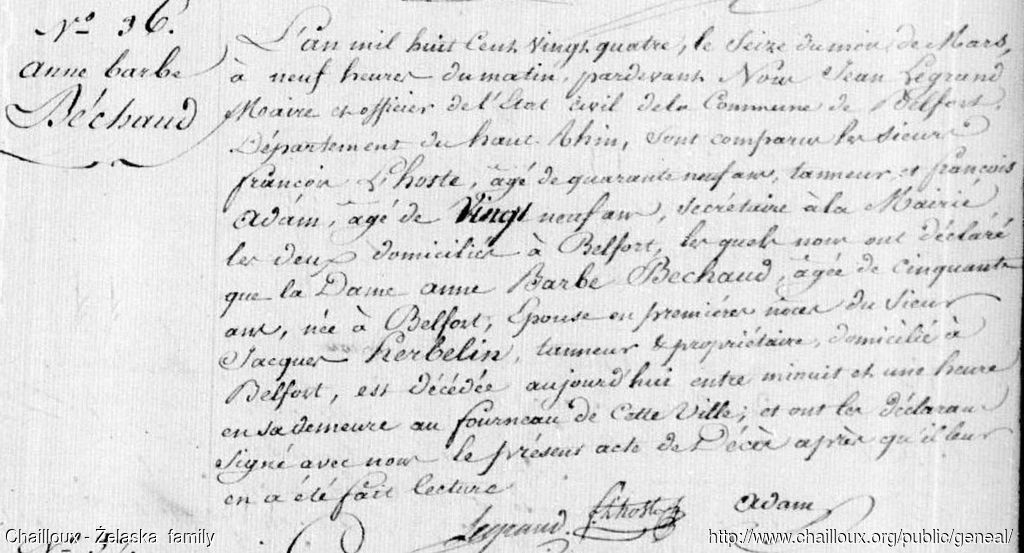 N.o 36.
anne barbe
Béchaud
L'an mil huit Cent Vingt quatre, le Seize du mois de Mars,
à neuf heures du matin, pardevant Nous Jean Legrand
Maire et officier de l'Etat Civil de la Commune de Belfort,
Département du haut Rhin, sont comparus les sieurs
françois L'hoste, âgé de quarante neuf ans, tanneur, et françois
Adam, âgé de Vingt neuf ans, secrétaire à la Mairie
les deux domiciliés à Belfort, les quels nous ont déclaré
que la Dame anne Barbe Bechaud, âgée de Cinquante
ans, née à Belfort, Epouse en premières noces du Sieur
Jacques herbelin, tanneur & propriétaire, domicilié à
Belfort, est décédée aujourd'hui entre minuit et une heure
en sa demeure au fourneau de Cette Ville; et ont les déclarans
signé avec nous le présent acte de Décès après qu'il leur
en a été fait lecture
Legrand. f. L'hoste Adam
Chailloux - Żelaska family
http://www.chailloux.org/public/geneal/